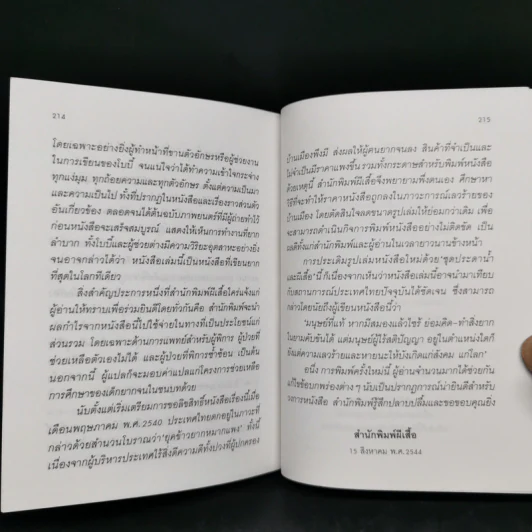 214
โดยเฉพาะอย่างยิ่งผู้ทำหน้าที่ขานตัวอักษรหรือผู้ช่วยงาน
ในการเขียนของโบบี้ จนแน่ใจว่าได้ทำความเข้าใจกระจ่าง
ทุกแง่มุม ทุกถ้อยความและทุกตัวอักษร ตั้งแต่ความเป็นมา
และความเป็นไป ทั้งที่ปรากฏในหนังสือและเรื่องราวส่วนตัว
อันเกี่ยวข้อง ตลอดจนได้ต้นฉบับภาพยนตร์ที่มีผู้ถ่ายทำไว้
ก่อนหนังสือจะเสร็จสมบูรณ์ แสดงให้เห็นการทำงานที่ยาก
ลำบาก ทั้งโบบี้และผู้ช่วยต่างมีความวิริยะอุตสาหะอย่างยิ่ง
จนอาจกล่าวได้ว่า หนังสือเล่มนี้เป็นหนังสือที่เขียนยาก
ที่สุดในโลกทีเดียว
สิ่งสำคัญประการหนึ่งที่สำนักพิมพ์ผีเสื้อใคร่แจ้งแก่
ผู้อ่านให้ทราบเพื่อร่วมยินดีโดยทั่วกันคือ สำนักพิมพ์จะนำ
ผลกำไรจากหนังสือนี้ไปใช้จ่ายในทางที่เป็นประโยชน์แก่
ส่วนรวม โดยเฉพาะด้านการแพทย์สำหรับผู้พิการ ผู้ป่วยที่
ช่วยเหลือตัวเองไม่ได้ และผู้ป่วยที่พิการซ้ำซ้อน เป็นต้น
นอกจากนี้ ผู้แปลก็จะมอบค่าแปลแก่โครงการช่วยเหลือ
การศึกษาของเด็กยากจนในชนบทด้วย
นับตั้งแต่เริ่มเตรียมการขอลิขสิทธิ์หนังสือเรื่องนี้เมื่อ
เดือนพฤษภาคม พ.ศ.2540 ประเทศไทยตกอยู่ในภาวะที่
กล่าวด้วยสำนวนโบราณว่า'ยุคข้าวยากหมากแพง' ทั้งนี้
เนื่องจากผู้บริหารประเทศไร้สิ่งดีความดีทั้งปวงที่ผู้ปกครอง
215
บ้านเมืองพึงมี ส่งผลให้ผู้คนยากจนลง สินค้าที่จำเป็นและ
ไม่จำเป็นมีราคาแพงขึ้น รวมทั้งกระดาษสำหรับพิมพ์หนังสือ
ด้วยเหตุนี้ สำนักพิมพ์ผีเสื้อจึงพยายามพึ่งตนเอง ศึกษาหา
วิธีที่จะทำให้ราคาหนังสือถูกลงในภาวะการณ์เลวร้ายของ
บ้านเมือง โดยตัดสินใจลดขนาดรูปเล่มให้ย่อมกว่าเดิม เพื่อ
จะสามารถดำเนินกิจการพิมพ์หนังสืออย่างไม่ติดขัด เป็น
ผลดีทั้งแก่สำนักพิมพ์และผู้อ่านในเวลายาวนานข้างหน้า
การประเดิมรูปเล่มหนังสือใหม่ด้วย'ชุดประดาน้ำ
และผีเสื้อ'นี้ ก็เนื่องจากเห็นว่าหนังสือเล่มนี้อาจนำมาเทียบ
กับสถานการณ์ประเทศไทยปัจจุบันได้ชัดเจน ซึ่งสามารถ
กล่าวโดยนัยถึงผู้เขียนหนังสือนี้ว่า
'มนุษย์ที่แท้ หากมีสมองแล้วไซร้ ย่อมคิด-ทำสิ่งยาก
ในยามคับขันได้ แต่มนุษย์ผู้ไร้สติปัญญา อยู่ในตำแหน่งใดก็
รังแต่ความเลวร้ายและหายนะให้บังเกิดแก่สังคม แก่โลก'
อนึ่ง การพิมพ์ครั้งใหม่นี้ ผู้อ่านจำนวนมากได้ช่วยกัน
แก้ไขข้อบกพร่องต่างๆ นับเป็นปรากฏการณ์น่ายินดีสำหรับ
วงการหนังสือ สำนักพิมพ์รู้สึกปลาบปลื้มและขอขอบคุณยิ่ง
สำนักพิมพ์ผีเสื้อ
15 สิงหาคม พ.ศ.2544